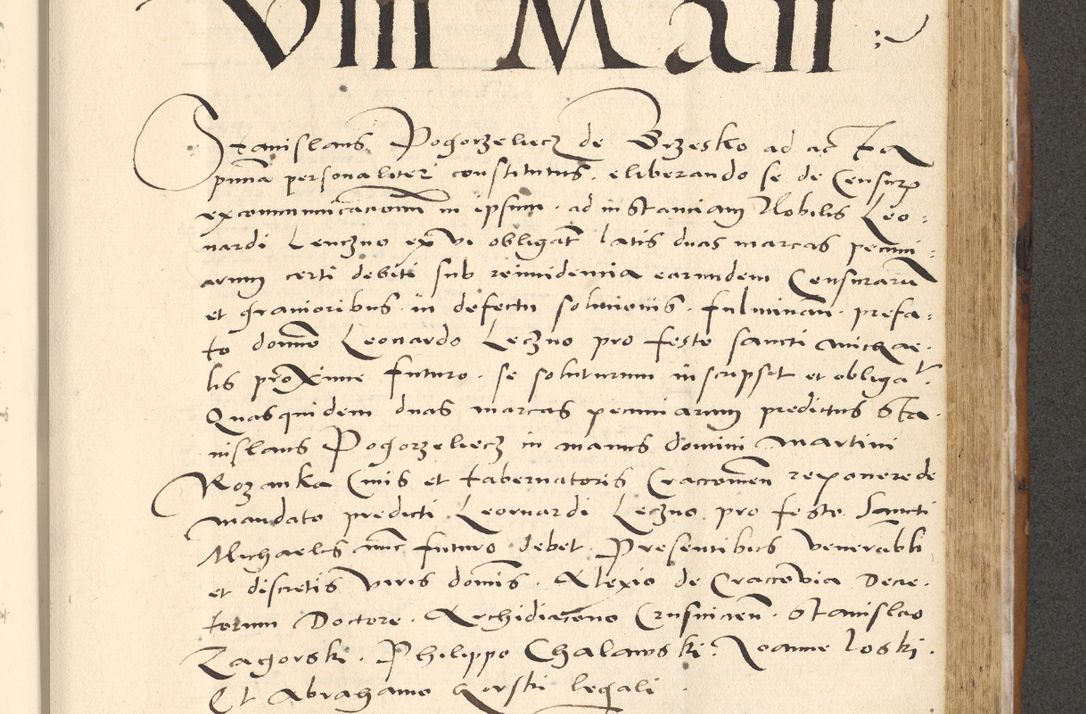 VIII MAII :
Stanislaus Pogorzeliecz de Brzesko ad ac ta
pnnā personaliter constitutus. eliberando se de Censurȩ
excommunicacionum in ipsum. ad instanciam Nobilis Leo:
nardi Lenczno ex vi obligat̄ latis duas marcas pecuni:
arum certi debiti sub reincidencia earundem Censurarū
et gravioribus. in defectu solucionis. fulminan̄. prefa:
to domino Leonardo Leczno pro festo sancti Michae:
lis proxime futuro. se soluturum inscripsit et obligat.
Quasquidem duas marcas pecuniarum predictus Sta.
nislaus Pogorzeliecz in manus domini Martini
Rozanka Civis et tabernatoris Cracovien̄ reponere de
mandato predicti Leornardi Leczno pro festo Sancti
Michaelis nunc futuro debet Presentibus venerabli
et discretis viris dominis. Alexio de Craccovia Decre.
torum Doctore. Archidiacono Crusvicien̄. Stanislao
Zagorski. Philippo Chalawski. Joanne Loski.
Et Abrahamo Gorski legali.